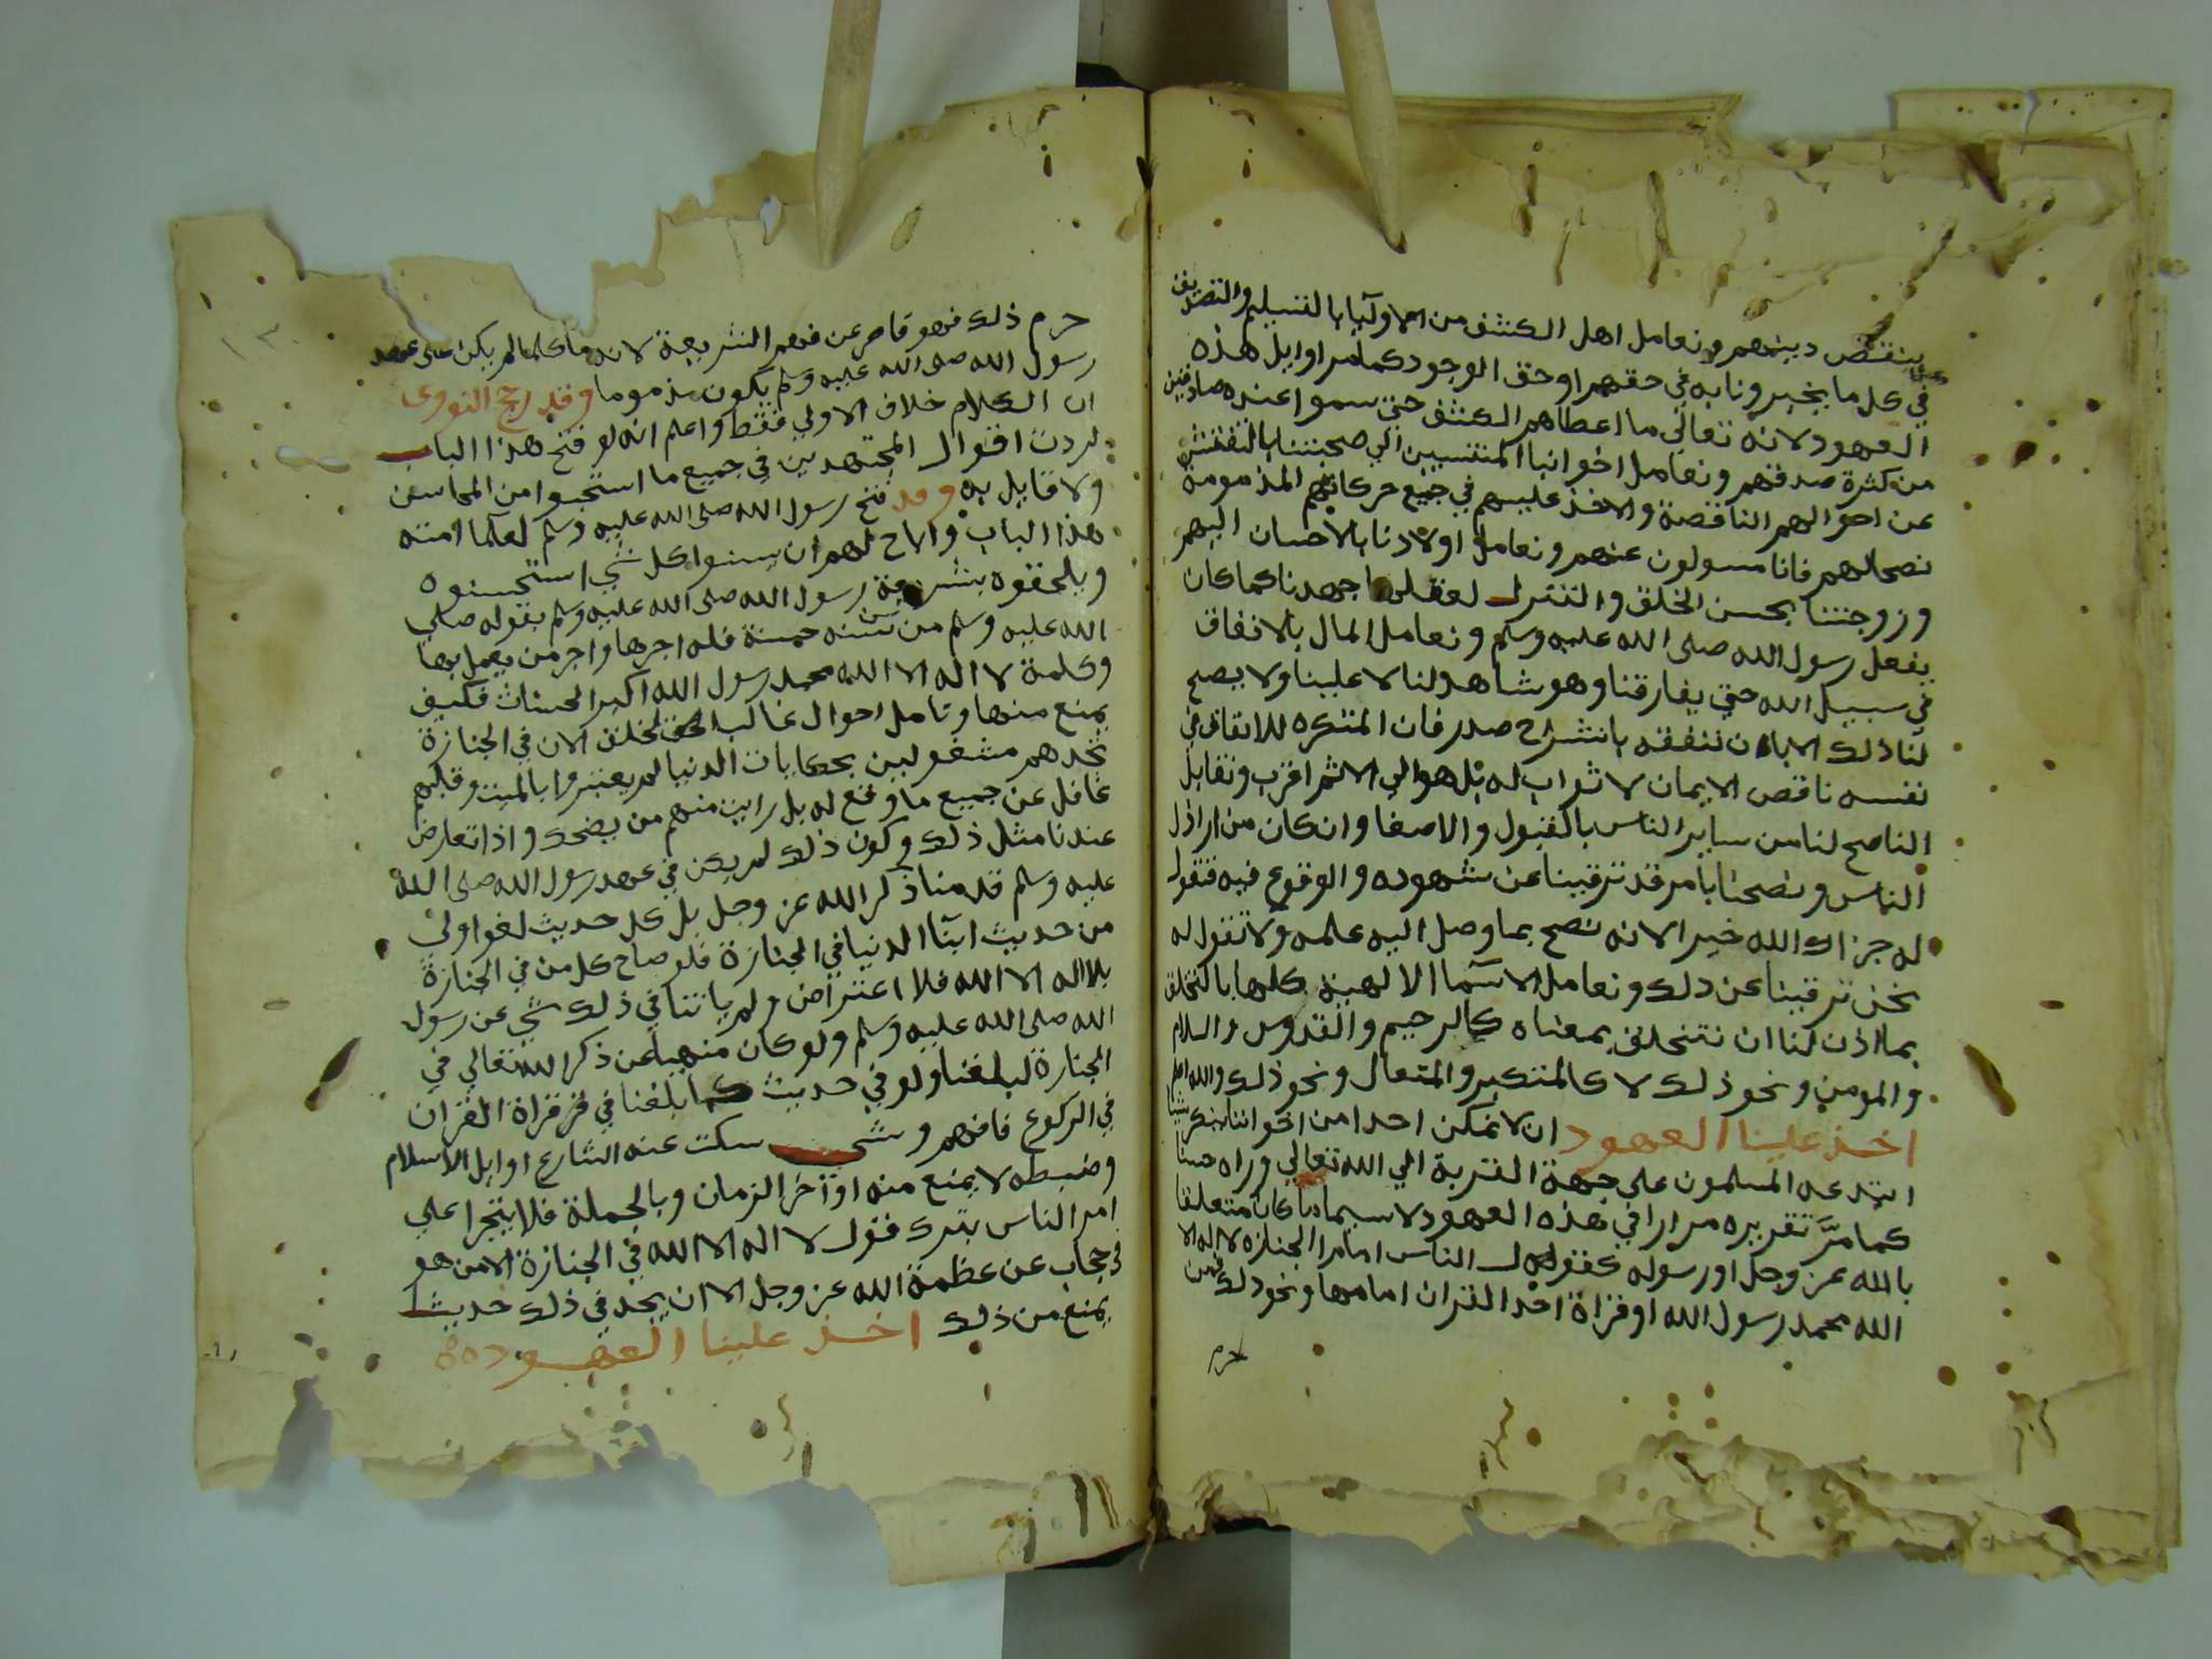 ينقص دينهم ونعامل اهل الكشف من الاوليا بالتسليم والتصديق
في كل ما يخبرونا به في حقهم او حق الوجود كما مر اوايل هذه
العهود لانه تعالى ما اعطاهم الكشف حتى سموا عنده صادقين
من كثرة صدقهم ونعامل اخواننا المنتسبين الي صحبتنا بالتفتيش
عن احوالهم الناقصة والاخذ عليهم في جميع حركاتهم المذمومة
نصحا لهم فانا مسولون عنهم ونعامل اولادنا بالاحسان اليهم
وزوجتنا بحسن الخلق والتنزل لعقلها جهدنا كما كان
يفعل رسول الله صلى الله عليه وسلم ونعامل المال بالانفاق
في سبيل الله حتي يفارقنا وهو شاهد لنا لا علينا ولا يصح
لنا ذلك الا بان ننفقه بانشراح صدر فان المتكره للانفاق في
نفسه ناقص الايمان لا ثواب له بل هو الي الاثم اقرب ونقابل
الناصح لنا من ساير الناس بالقبول والاصغا وان كان من اراذل
الناس ونصحنا بامر قد ترقينا عن شهوده والوقوع فيه فنقول
له جزاك الله خيرا لانه نصح بما وصل اليه علمه ولا نقول له
نحن ترقينا عن ذلك ونعامل الاسما الالهية كلها بالتخلق
بما اذن لنا ان نتخلق بمعناه كالرحيم والقدوس والسلام
والمومن ونحو ذلك لا كالمتكبر والمتعال ونحو ذلك والله اعلم
اخذ علينا العهود ان لا نمكن احدا من اخواننا ينكر شيا
ابتدعه المسلمون على جهة القربة الي الله تعالي وراه حسنا
كما مر تقريره مرارا في هذه العهود لا سيما ما كان متعلقا
بالله عز وجل او رسوله كقول الناس امام الجنازة لا اله الا
الله محمد رسول الله او قراة احد القران امامها ونحو ذلك فمن
حرم
حرم ذلك فهو قاصر عن فهم الشريعة لانه ما كلما لم يكن على عهد
رسول الله صلى الله عليه وسلم يكون مذموما وقد رجح النووى
ان الكلام خلاف الاولي فقط واعلم انه لو فتح هذا الباب
لردت اقوال المجتهدين في جميع ما استحبوا من المحاسن
ولا قايل به وقد فتح رسول الله صلى الله عليه وسلم لعلما امته
هذا الباب واباح لهم ان يسنوا كل شي استحسنوه
ويلحقوه بشريعة رسول الله صلى الله عليه وسلم بقوله صلي
الله عليه وسلم من سن سنة حسنة فله اجرها واجر من يعمل بها
وكلمة لا اله الا الله محمد رسول الله اكبر الحسنات فكيف
يمنع منها وتامل احوال غالب الخلق الان في الجنازة
تجدهم مشغولين بحكايات الدنيا لم يعتبروا بالميت وقلبهم
غافل عن جميع ما وقع له بل رايت منهم من يضحك واذا تعارض
عندنا مثل ذلك وكون ذلك لم يكن في عهد رسول الله صلى الله
عليه وسلم قدمنا ذكر الله عز وجل بل كل حديث لغو اولى
من حديث ابنا الدنيا في الجنازة فلو صاح كل من في الجنازة
بلا اله الا الله فلا اعتراض ولم ياتنا في ذلك شي عن رسول
الله صلى الله عليه وسلم ولو كان منهيا عن ذكر الله تعالي في
الجنازة لبلغنا ولو في حديث كما بلغنا في قراة القران
في الركوع فافهم وشي سكت عنه الشارع اوايل الاسلام
وضبطه لا يمنع منه اواخر الزمان وبالجملة فلا يتجرا علي
امر الناس بترك قول لا اله الا الله في الجنازة الا من هو
في حجاب عن عظمة الله عز وجل الا ان يجد في ذلك حديثا
يمنع من ذلك اخذ علينا العهود